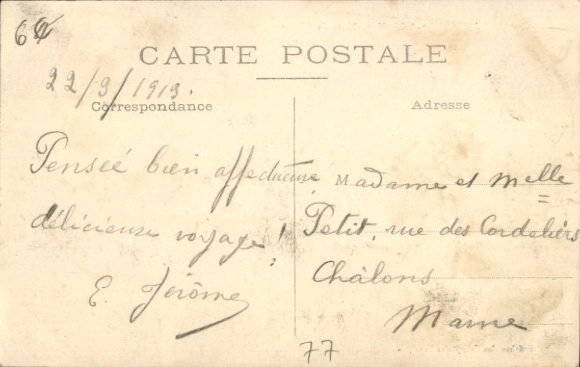 64
CARTE POSTALE
22/9/1913.
Correspondance
Adresse
Pensée bien affectueuse
délicieuse voyage !
E. Jérôme
Madame et Melle
Petit, rue des Cordeliers
Châlons
Marne
77